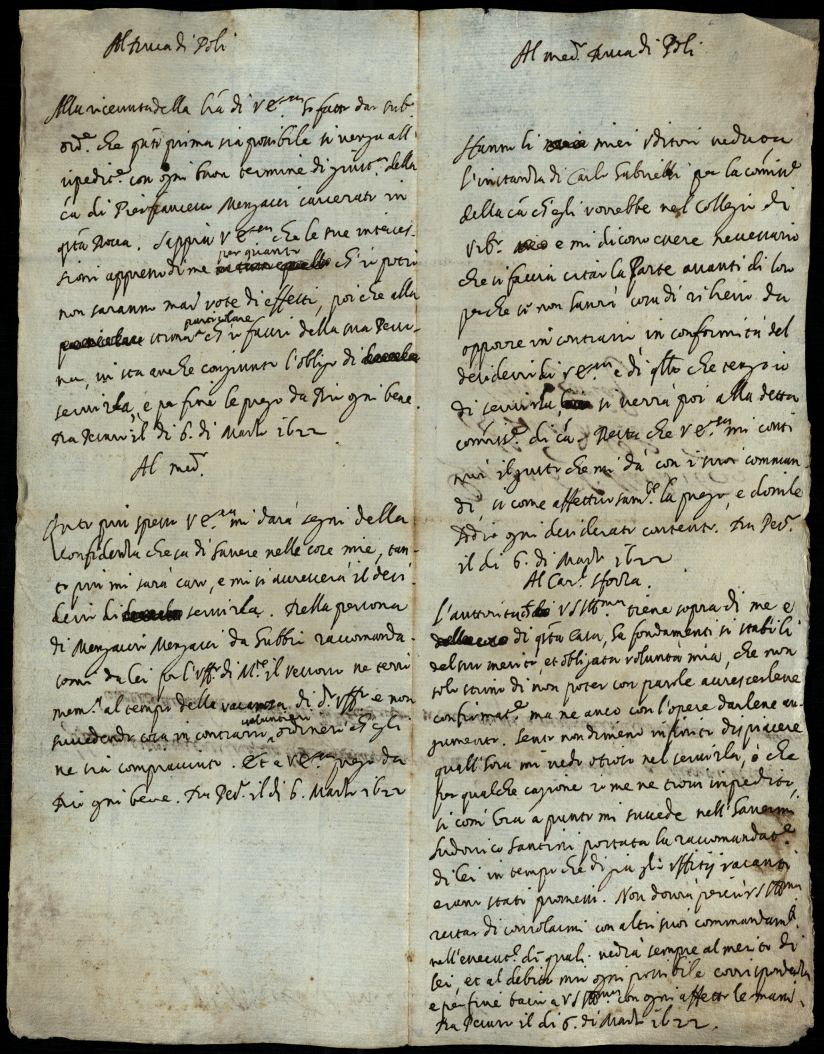 Al Duca di Poli
Alla ricevuta della lrã di V Ecc.za ho fatto dar sub.
ord.e che qñto prima sia possibile si venga all'
ispedit.e con ogni buon termine di giust.a della
cã di Pierfrancesco Mengacci carcerato in
qsta Rocca. Sappia V Ecc.za che le sue interces-
sioni appresso di me per quanto ch'io potrò
non saranno mai vote di effetti, poi che alla
stima particolare ch'io faccio della sua Perso-
na, insta anche congiunto l'obligo di
servirla, e per fine le prego da Dio ogni bene.
Da Pesaro il di 6. di Marzo 1622
Al med.o
Qnto più spesso V Ecc.za mi darà segni della
confidenza che sa di havere nelle cose mie, tan-
to più mi sarà caro, e mi si accrescerà il desi-
derio di servirla. Della persona
di Mengaccio Mengacci da Gubbio raccomanda-
tomi da lei per l'uff.o di M.te il vecchio ne terrò
mem.a al tempo della vacanza di d.o uff.o e non
succedendo cosa in contrario, volentieri ordinerò ch'egli
ne sia compiaciuto. Et a V Ecc.za prego da
Dio ogni bene. Da Pes.o il di 6. Marzo 1622
Al med.o Duca di Poli
Hanno li miei Uditori veduta
l'instanza di Carlo Gabrielli per la comiss.e
della cã ch'egli vorrebbe nel Collegio di
Urb.o e mi dicono essere necessario
che si faccia citar la Parte avanti di loro
perche se non havrà cosa di rilievo da
opporre in contrario, in conformità del
desiderio di V Ecc.za e di qllo che tengo io
di servirla si verrà poi alla detta
comiss.e di cã. Resta che V Ecc.za mi conti
nui il gusto che mi dà con i suoi comman
di, si come affettuosam.te la prego, e donile
Iddio ogni desiderato contento. Da Pes.o
il di 6. di Marzo 1622
Al Car.l Sforza.
L'auttorità che V S Ill.ma tiene sopra di me e
di qsta Casa, ha fondamenti si stabili
del suo merito, et obligata voluntà mia, che non
solo stimo di non poter con parole accrescerlene
confirmat.e ma ne anco con l'opere darlene au-
gumento. Sento nondimeno infinito dispiacere
qualk'hora mi vedo otioso nel servirla, ò che
per qualche cagione io me ne trovi impedito,
si com'hora à punto mi succede nell'havermi
Ludovico Santini portata la raccomandat.e
di lei in tempo che di già gli uffitij vacanti
erano stati promessi. Non dovrà perciò V S Ill.ma
restar di consolarmi con altri suoi commandam.ti
nell'execut.e di quali vedrà sempre al merito di
lei, et al debito mio ogni possibile corrispondenza
e per fine bacio a V S Ill.ma con ogni affetto le mani.
Da Pesaro il di 6. di Marzo 1622.